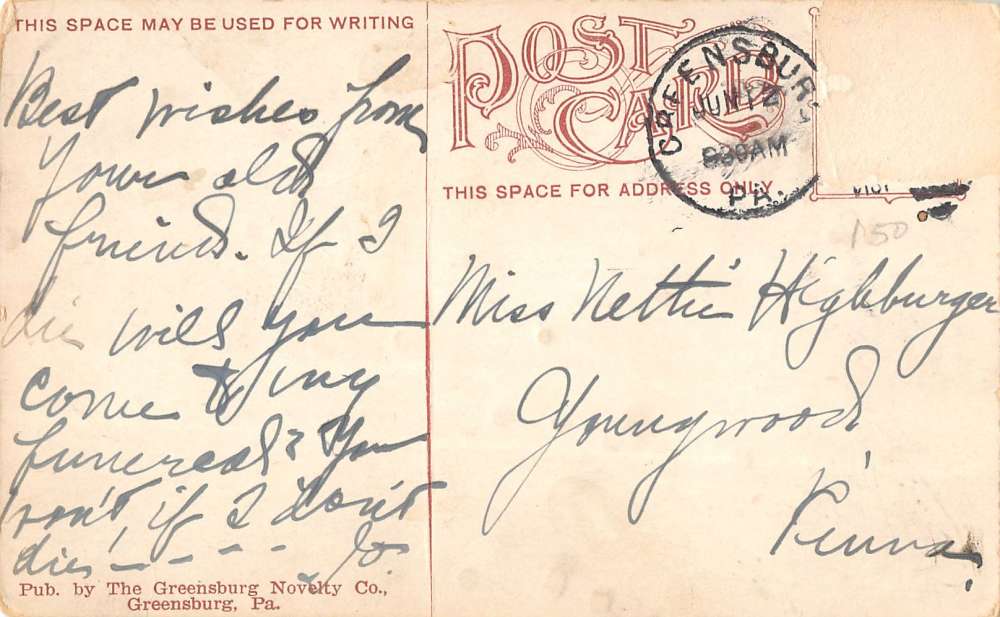 THIS SPACE MAY BE USED FOR WRITING
Best wishes from
your old
friend. If I
die will you
come to my
funeral? You
won't, if I don't
die - - - - Jo.
Pub. by The Greensburg Novelty Co.,
Greensburg, Pa.
POST
CARD
THIS SPACE FOR ADDRESS ONLY
GREENSBURG
JUN 12
930AM
PA.
150
Miss Nettie Highburger
Youngwood
Penna.